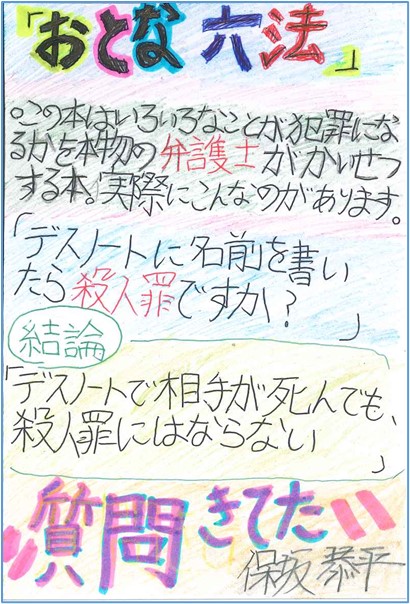 「おとな六法」
。この本はいろいろなことが犯罪にな
るかを本物の弁護士がかいせつ
する本。実際にこんなのがあります。
「デスノートに名前を書い
たら殺人罪ですか?
」
結論
「デスノートで相手が死んでも、
殺人罪にはならない
」
質問きてた!!
保坂恭平